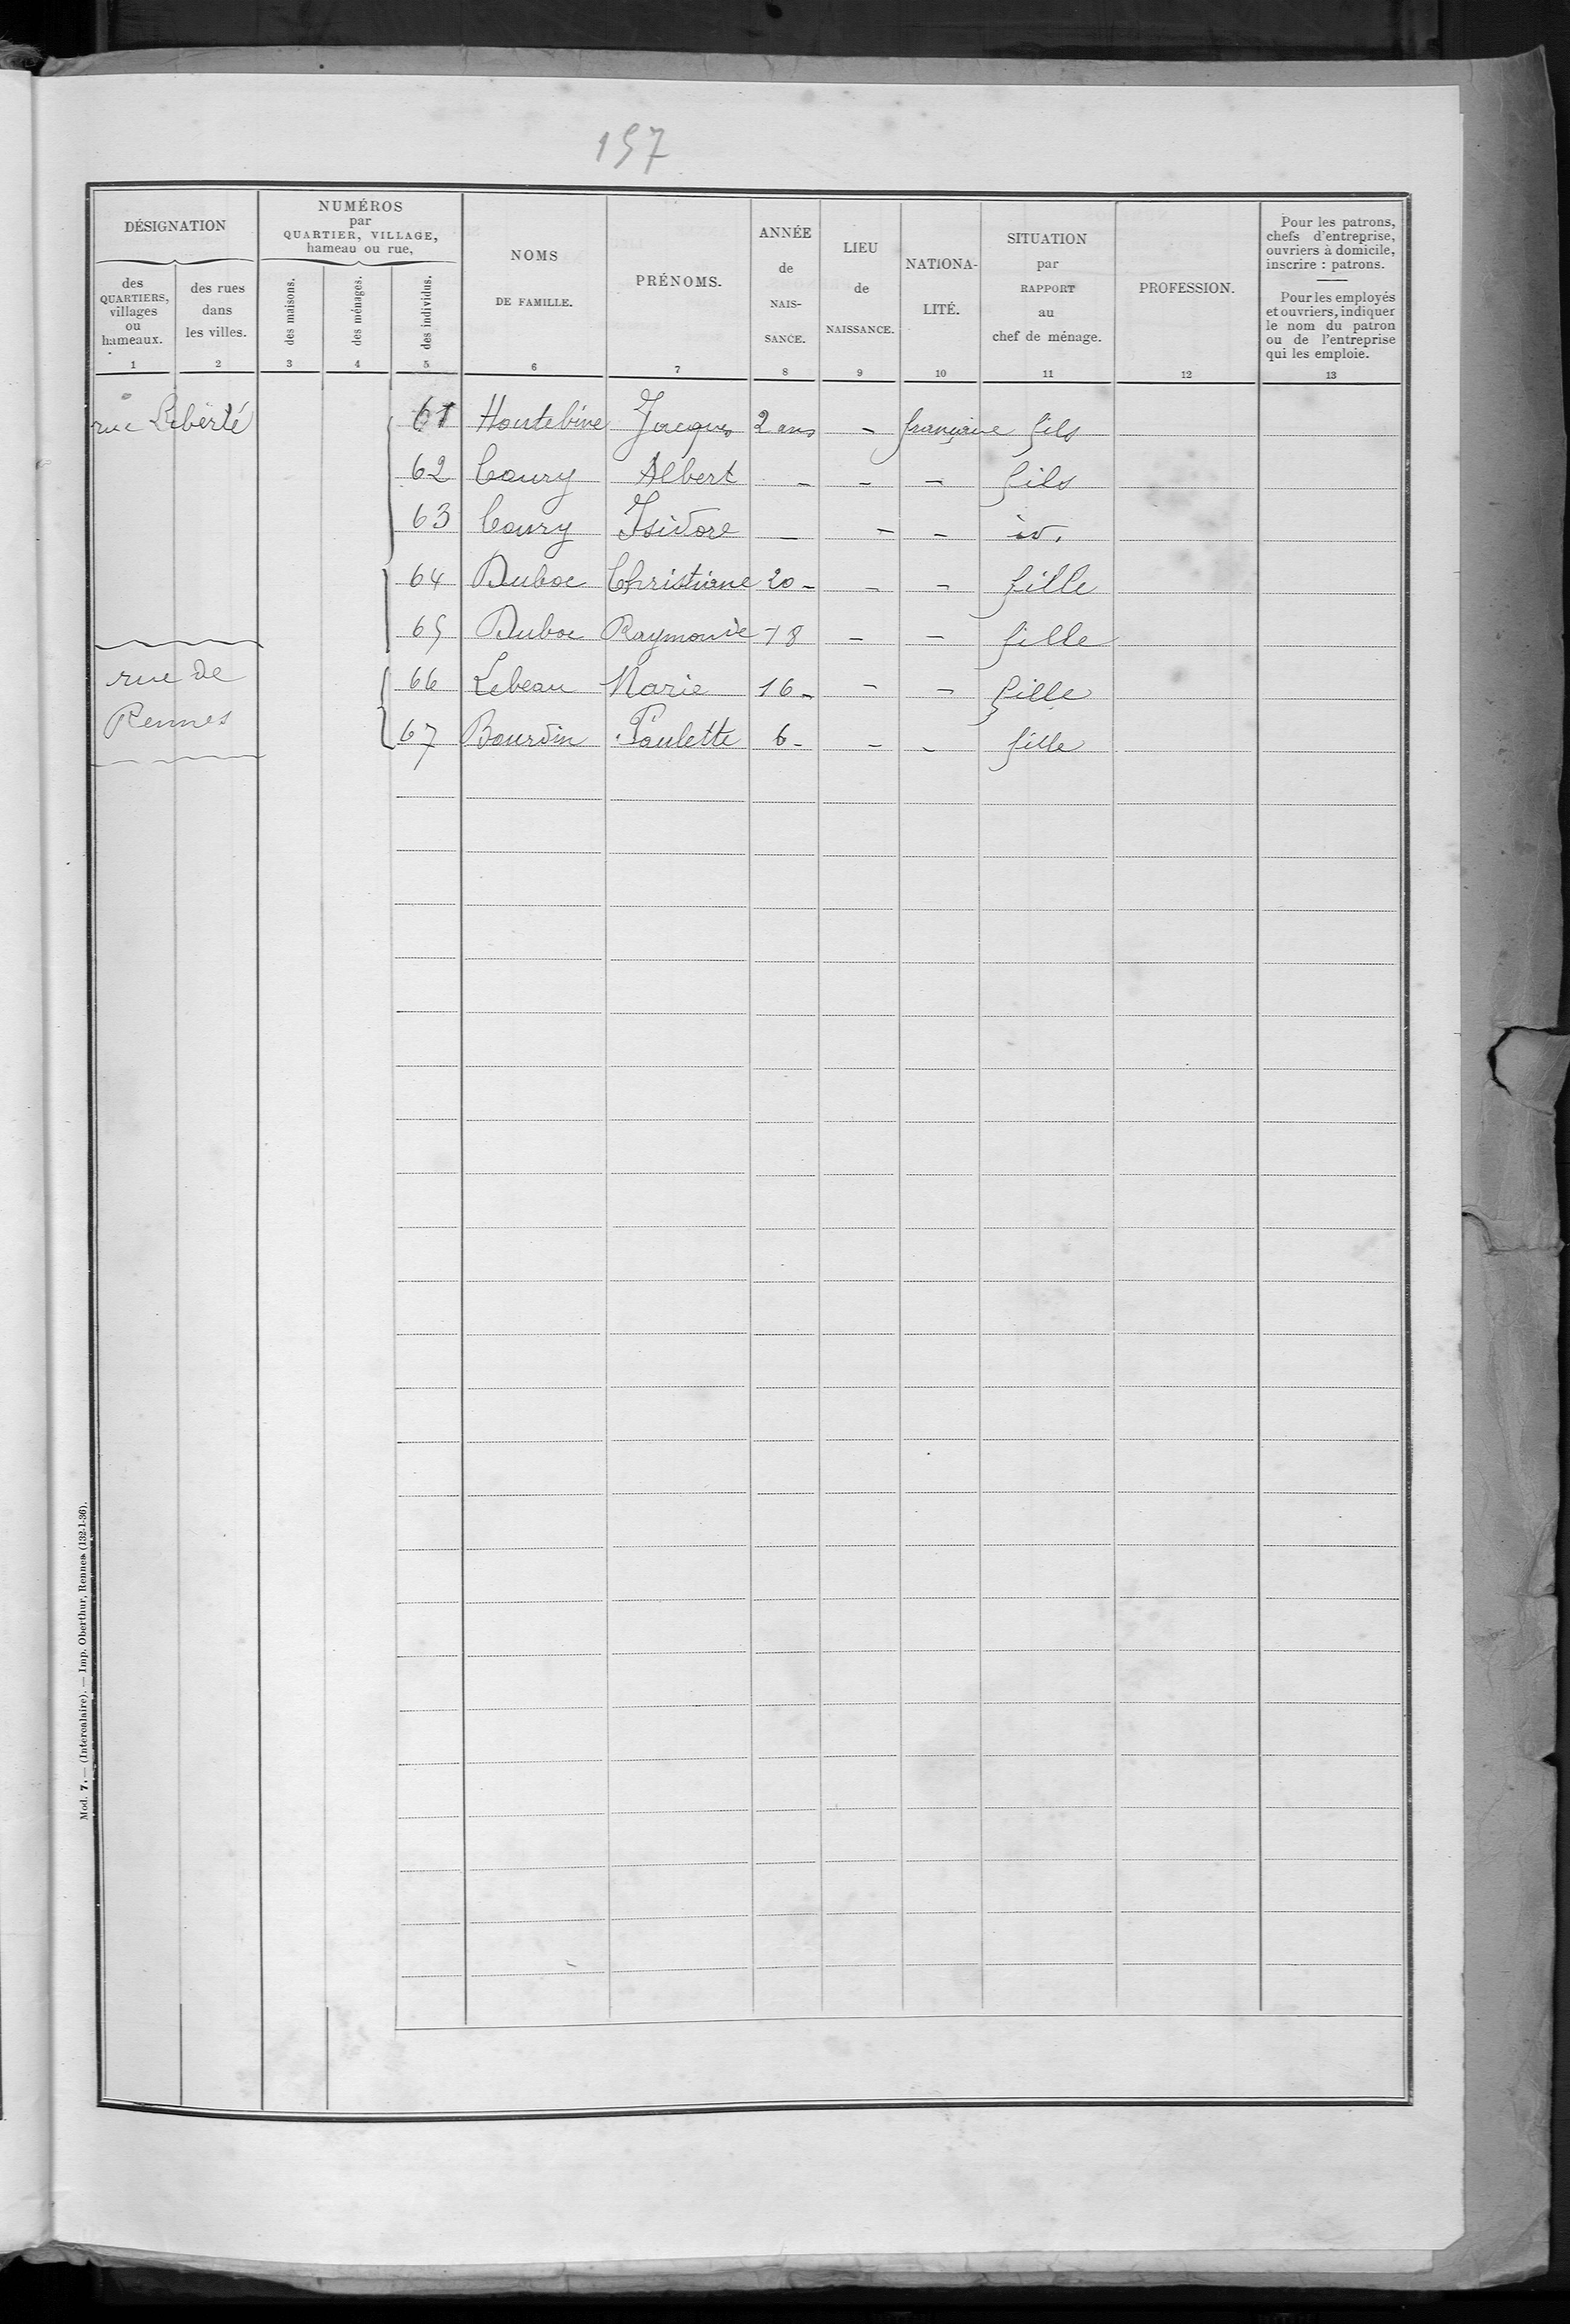 157
DÉSIGNATION
NUMÉROS
par
QUARTIER, VILLAGE,
hameau ou rue,
des
QUARTIERS,
villages
ou
hameaux.
des rues
dans
les villes.
des maisons.
des ménages.
des individus.
NOMS
DE FAMILLE.
PRÉNOMS.
ANNÉE
de
NAIS-
SANCE.
LIEU
de
NAISSANCE.
NATIONA-
LITÉ.
SITUATION
par
RAPPORT
au
chef de ménage.
PROFESSION.
Pour les patrons,
chefs d'entreprise,
ouvriers à domicile,
inscrire : patrons.
Pour les employés
et ouvriers, indiquer
le nom du patron
ou de l'entreprise
qui les emploie.
1 2 3 4 5 6 7 8 9 10 11 12 13
rue Liberté 61 Jacques 2 ans - française fils
62 Coury Albert - - - fils
63 Coury Isidore - - - id.
64 Duboc Christiane 20 - - - fille
65 Duboc Raymonde 18 - - fille
rue de
66 Lebeau Marie 16 - - - fille
Rennes
67 Bourdin Paulette 6 - - - fille
Mod. 7. — (Intercalaire). — Imp. Oberthur, Rennes (132-1-36).